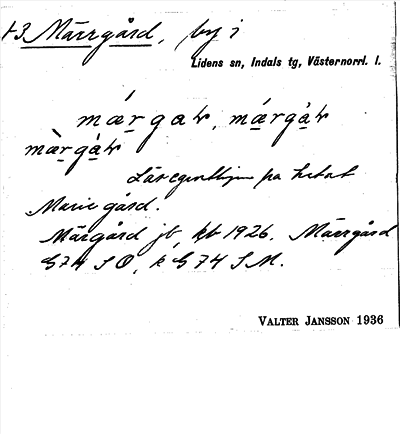 +3 Märrgård, by i
Lidens sn, Indals tg, Västernorrl. l.
märgaṭ, märgåṭ
märgåṭ
Lär egentligen ha hetat
Marie gård.
Märgård jb, kb 1926. Märrgård
G74 SO, k G74 SM.
VALTER JANSSON 1936